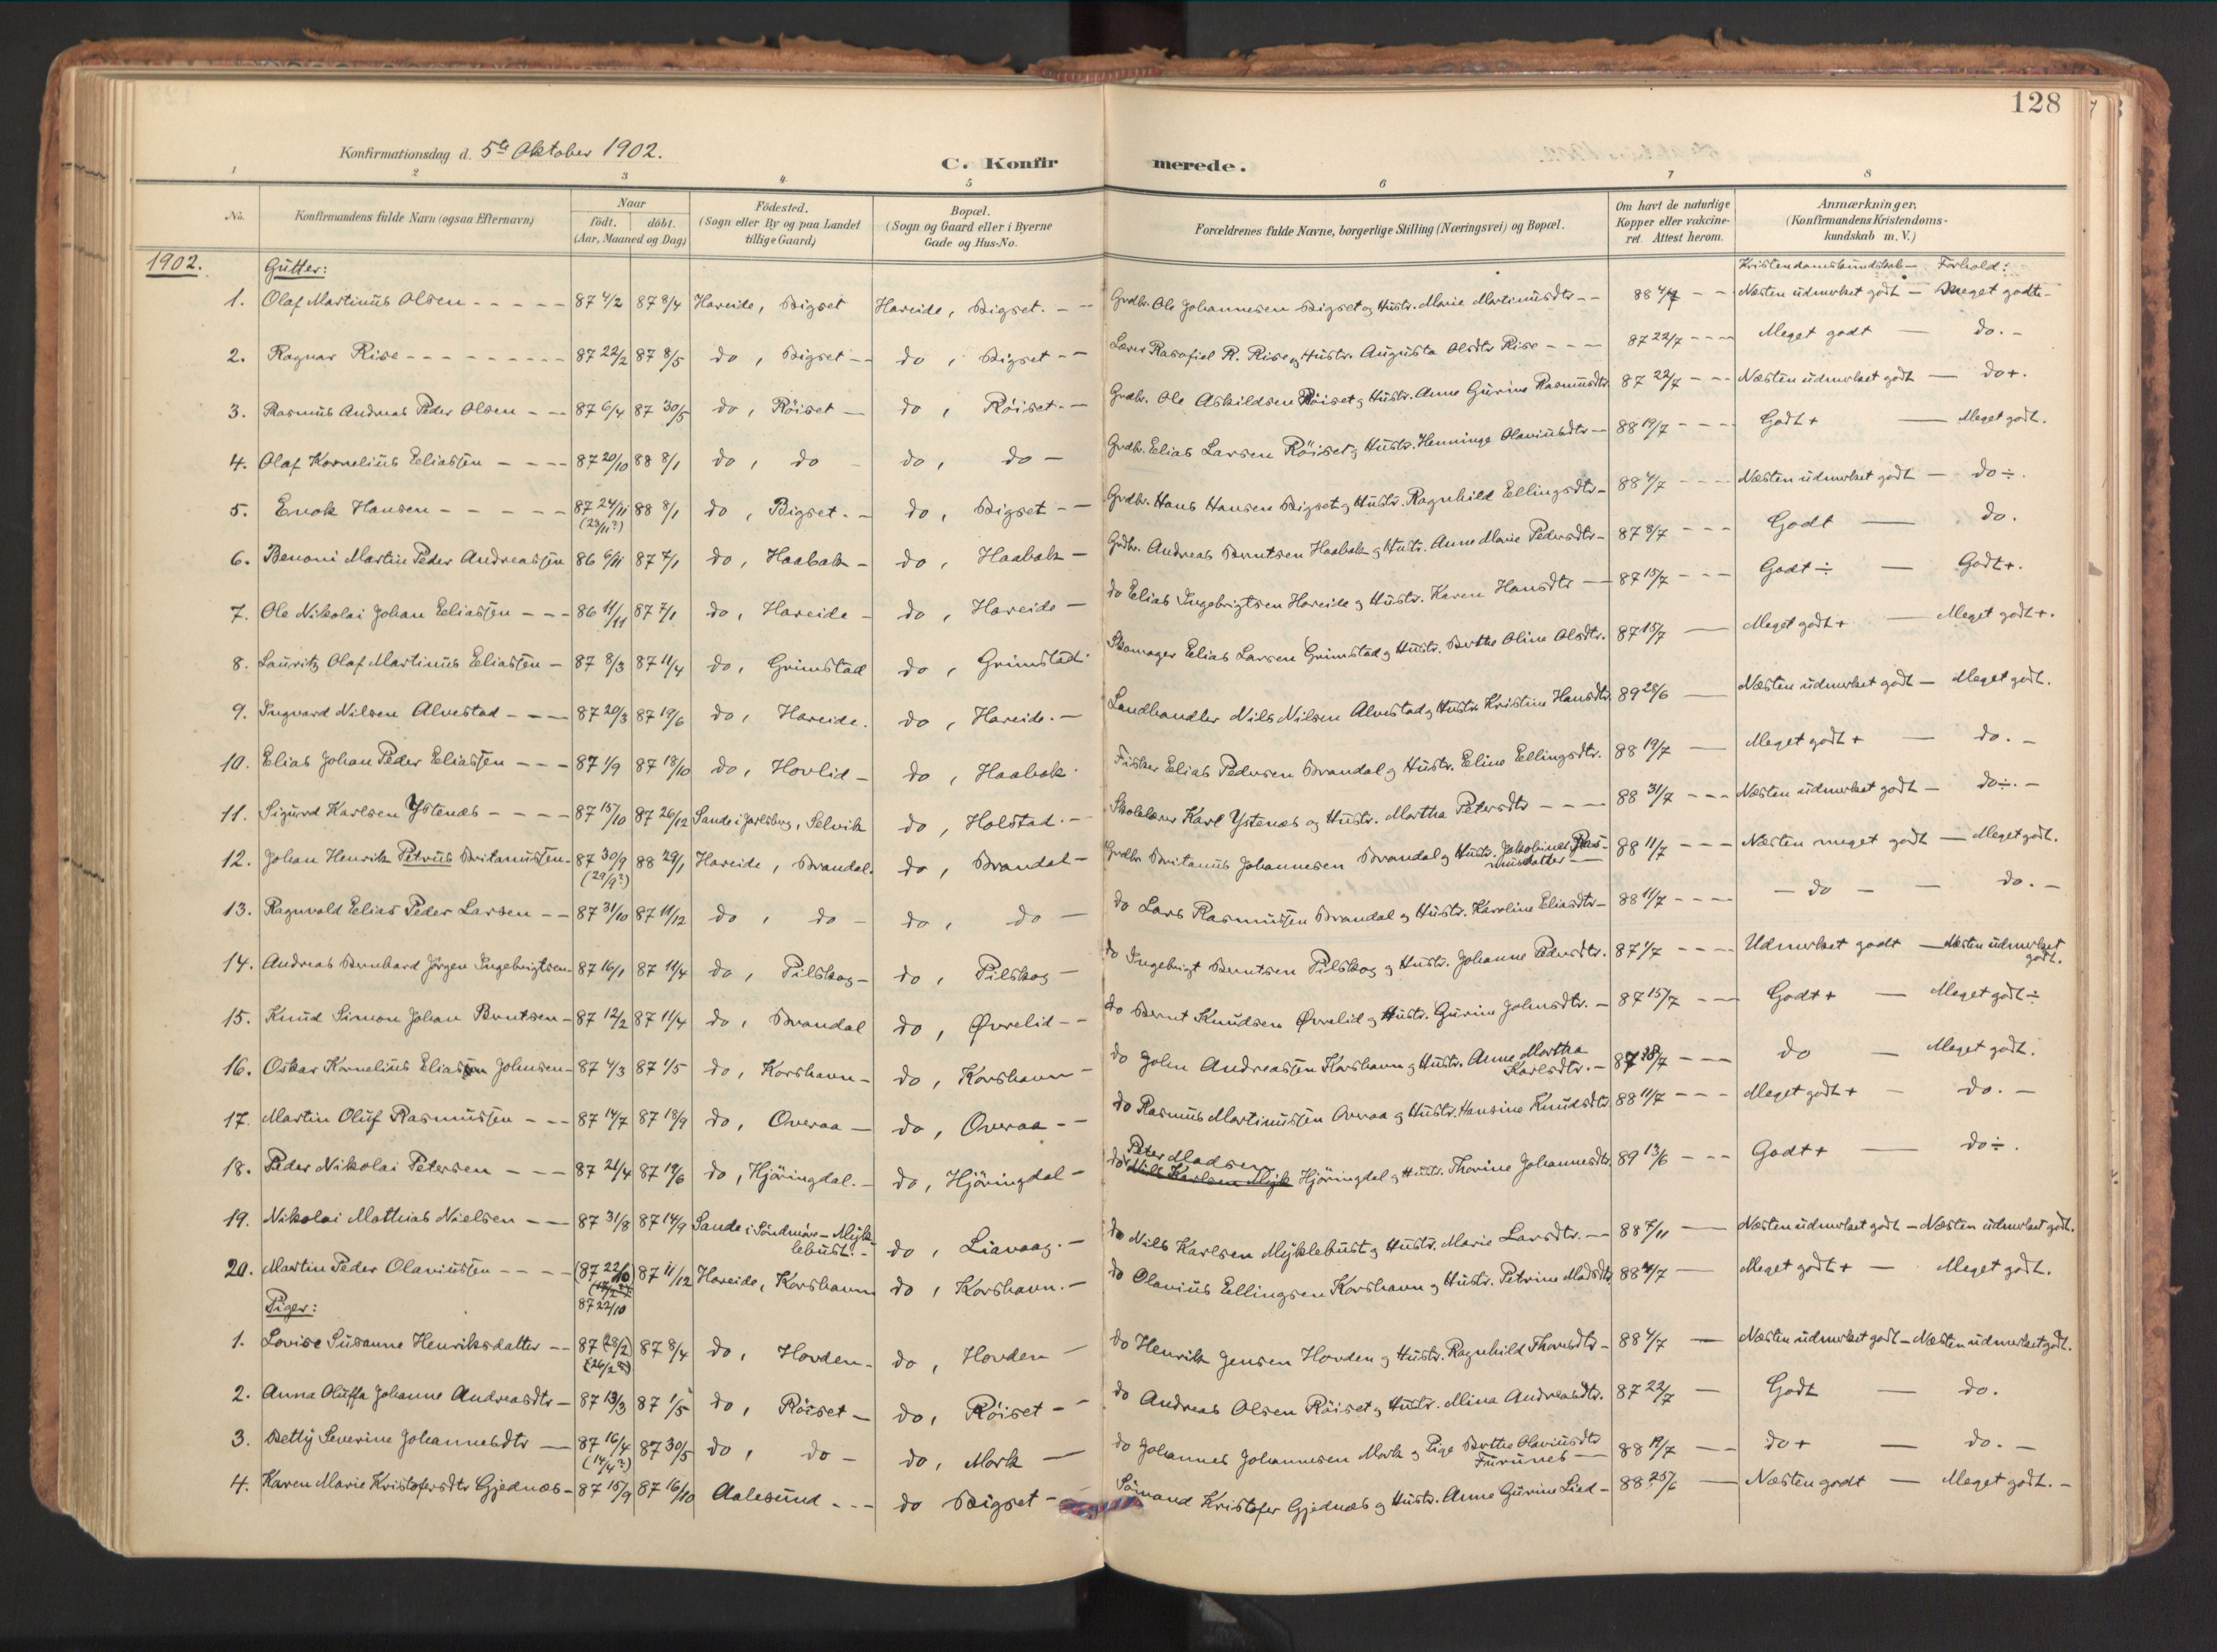 128
Konfirmationsdag d. 5te Oktober 1902.
C. Konfirmerede.
1 2 3 4 5 6 7 8
No. Konfirmandens fulde Navn (ogsaa Efternavn) Naar födt. döbt. (Aar, Maaned og Dag) Födested. (Sogn eller By og paa Landet tillige Gaard) Bopæl. (Sogn og Gaard eller i Byerne Gade og Hus-No. Forældrenes fulde Navne, borgerlige Stilling (Næringsvei) og Bopæl. Om havt de naturlige Kopper eller vakcineret. Attest herom. Anmærkninger. (Konfirmandens Kristendomskundskab m. V.)
1902. Gutter: Kristendomskundskab – Forhold:
1. Olaf Martinus Olsen - - - - - 87 4/2 87 8/4 Hareide, Bigset Hareide, Bigset. - - Grdbr. Ole Johannesen Bigset og Hustr. Marie Martinusdtr - - 88 4/7 - - Næsten udmerket godt – Meget godt -
2. Ragnar Rise - - - - - - - - - 87 22/2 87 8/5 do, Bigset - - do, Bigset - - Lærer Rasofiel R. Rise og Hustr. Augusta Olsdtr Rise - - - 87 22/7 - - - Meget godt — do. -
3. Rasmus Andreas Peder Olsen - - 87 6/4 87 30/5 do, Röiset - do, Röiset - - Grdbr. Ole Askildsen Röiset og Hustr. Anne Gurine Rasmusdtr. 87 22/7 - - - Næsten udmerket godt — do +.
4. Olaf Kornelius Eeliassen - - - - 87 20/10 88 8/1 do, do - do, do - Grdbr. Eelias Larsen Röiset og Hustr. Henninge Olaviusdtr - 88 19/7 - - - - Godt + — Meget godt.
5. Enok Hansen - - - - - 87 24/11 (23/11?) 88 8/1 do, Bigset. - do, Bigset - - Grdbr. Hans Hansen Bigset og Hustr. Ragnhild Ellingsdtr - 88 4/7 - - - - Næsten udmerket godt — do ÷.
6. Benoni Martin Peder Andreassen 86 6/11 87 7/1 do, Haabak - do, Haabak - Grdbr. Andreas Berntsen Haabak og Hustr. Anne Marie Pedersdtr - 87 8/7 - - - Godt — do.
7. Ole Nikolai Johan Eeliassen - - - 86 11/11 87 7/1 do, Hareide - do, Hareide - do Eelias Ingebrigtsen Hareide og Hustr. Karen Hansdtr — 87 15/7 - - - Godt ÷ — Godt +.
8. Lauritz Olaf Martinus Eeliassen - 87 8/3 87 11/4 do, Grimstad do, Grimstad. Skomager Eelias Larsen Grimstad og Hustr. Berthe Oline Olsdtr. 87 15/7 — Meget godt + — Meget godt +.
9. Ingvard Nilsen Alvestad - - - 87 20/3 87 19/6 do, Hareide. do, Hareide. - Landhandler Nils Nilsen Alvestad og Hustr. Kristine Hansdtr. 89 28/6 — Næsten udmerket godt — Meget godt.
10. Elias Johan Peder Eeliassen - - - 87 1/9 87 18/10 do, Hovlid - do, Haabak. Fisker Elias Pedersen Brandal og Hustr. Eline Ellingsdtr. 88 19/7 — Meget godt + — do. -
11. Sigurd Karlsen Ystenæs - - - - 87 15/10 87 26/12 Sande i Jarlsberg, Selvik do, Holstad. - Skolelærer Karl Ystenæs og Hustr. Martha Petersdtr - - - 88 31/7 - - - Næsten udmerket godt — do ÷. -
12. Johan Henrik Petrus Britanussen - 87 30/9 (29/9?) 88 29/1 Hareide, Brandal. do, Brandal - Grdbr Britanus Johannesen Brandal og Hustr. Jakobine Rasmusdatter — 88 11/7 - - - Næsten meget godt — Meget godt.
13. Ragnvald Eelias Peder Larsen - - 87 31/10 87 11/12 do, do - do, do - do Lars Rasmussen Brandal og Hustr. Karoline Eliasdtr - 88 11/7 - - - - - do - — do. -
14. Andreas Bernhard Jörgen Ingebrigtsen - 87 16/1 87 11/4 do, Pilskog - do, Pilskog - do Ingebrigt Berntsen Pilskog og Hustr. Johanne Pedersdtr. 87 1/7 - - - - Udmerket godt — Næsten udmerket godt.
15. Knud Simon Johan Berntsen - 87 12/2 87 11/4 do, Brandal do, Øvrelid - - do Bernt Knudsen Øvrelid og Hustr. Gurine Johnsdtr. - 87 15/7 - - - Godt + — Meget godt ÷
16. Oskar Kornelius Eliassen Johnsen - 87 4/3 87 1/5 do, Korshavn - do, Korshavn - do John Andreassen Korshavn og Hustr. Anne Martha Karlsdtr. - 87 28/7 - - - do — Meget godt.
17. Martin Oluf Rasmussen - - - 87 14/7 87 18/9 do, Overaa - do, Overaa - - do Rasmus Martinussen Overaa og Hustr. Hansine Knudsdtr 88 11/7 - - - Meget godt + - do. -
18. Peder Nikolai Petersen - - - 87 21/4 87 19/6 do, Hjöringdal. - do, Hjöringdal - do Peter Madsen Nils Karlsen Mykl Hjöringdal og Hustr. Thorine Johannesdtr. 89 13/6 - - - Godt + — do ÷.
19. Nikolai Mathias Nielsen - - 87 31/8 87 14/9 Sande i Söndmör - Myklebust. - do, Liavaag. - do Nils Karlsen Myklebust og Hustr. Marie Larsdtr. - 88 7/11 — Næsten udmerket godt - Næsten udmerket godt.
20. Martin Peder Olaviussen - - - - (87 22/10) 87 22/10 87 11/12 Hareide, Korshavn do, Korshavn. - do Olavius Ellingsen Korshavn og Hustr. Petrine Madsdtr 88 4/7 — Meget godt + — Meget godt.
Piger:
1. Lovise Susanne Henriksdatter - - 87 28/2 (26/2?) 87 8/4 do, Hovden - do, Hovden - do Henrik Jensen Hovden og Hustr. Ragnhild Thorsdtr - 88 4/7 — Næsten udmerket godt - Næsten udmerket godt.
2. Anna Oluffa Johanne Andreasdtr - 87 13/3 87 1/5 do, Röiset - do, Röiset - - do Andreas Olsen Röiset og Hustr. Mina Andreasdtr. 87 22/7 — Godt — do.
3. Betty Severine Johannesdtr — 87 16/4 (14/4?) 87 30/5 do, do - do, Mork - do Johannes Johannesen Mork og Pige Berthe Olaviusdtr Furunes — 88 19/7 - - do + — do. -
4. Karen Marie Kristofersdtr Gjednæs - 87 15/9 87 16/10 Aalesund - - - do Bigset - Sömand Kristofer Gjednæs og Hustr. Anne Gurine Lied - 88 25/6 — Næsten godt — Meget godt. -